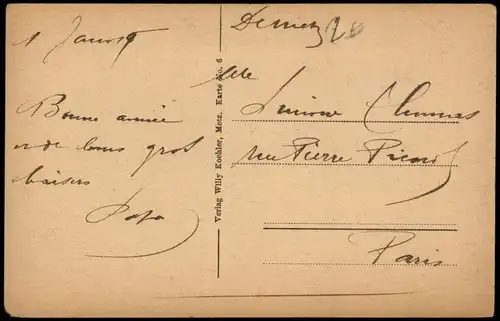 1 Janv 19
Bonne année
et de bons gros
baisers
Papa
Verlag Willy Koehler, Metz. Karte No. 6
Mlle
Simone
rue Pierre Picard
Paris